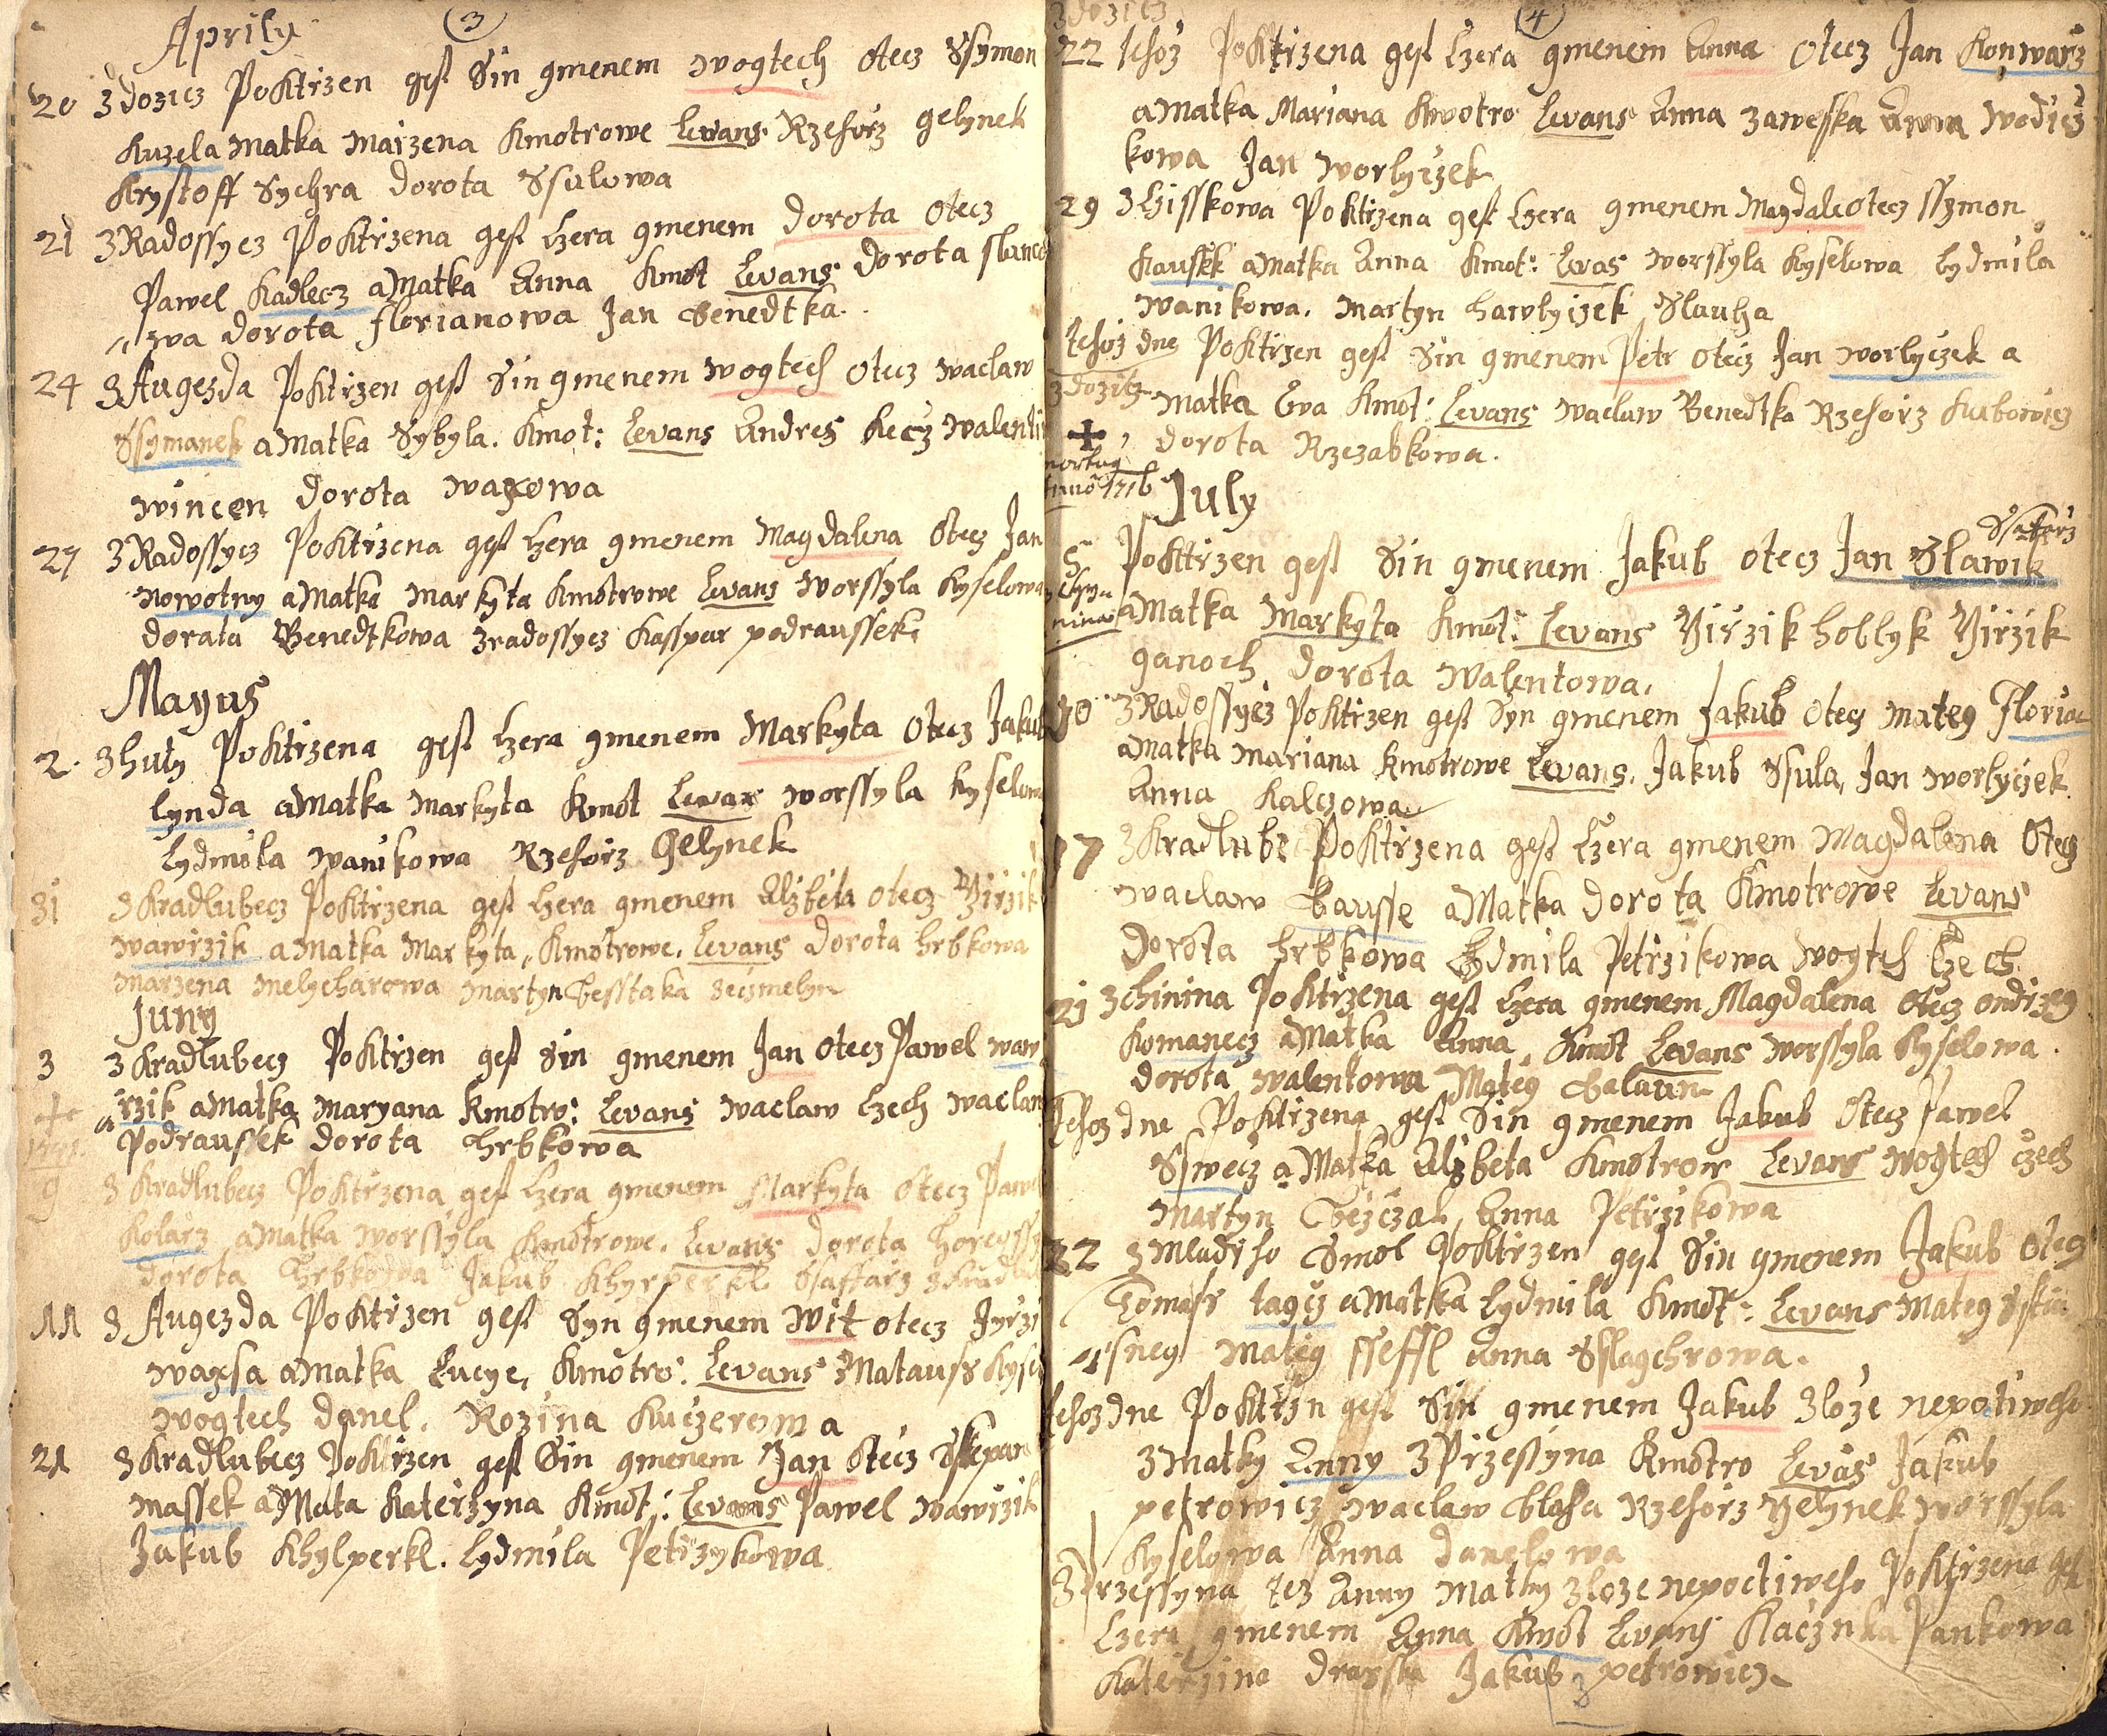 3
Aprily
20 Zdozicz Poktrzen gest Sin gmenem wogtech otecz Ssymon
Kuzela Matka Marzena Kmotrowe Levans Rzehorz gelynek
Krystoff Sychra Dorota Ssulowa
21 Z Radossycz Poktrzena gest Czera gmenem Dorota Otecz
Pawel Kadlecz a Matka Anna Kmot Levans Dorota
wa Dorota florianowa Jan Benedtka
24 Z Augezda Poktrzen gest Sin gmenem wogtech Otecz waclaw
Ssymanek a Matka Sybyla. Kmot: Levans Andres Kecz walenti
wincen Dorota waxowa
27 Z Radossycz Poktrzena gest Czera gmenem Magdalena Otecz Jan
Nowotny a Matka Markyta Kmotrowe Levans worssyla Kyselowa
Dorata Benedtkowa Zradossycz Kasspar podraussek
Mayus
2. Z huty Poktrzena gest Czera gmenem Markyta Otecz Jakub
Lynda a Matka Markyta Kmot Levans worssyla Kyselowa
Lydmila wanikowa Rzehorz Gelynek
31 Z Kradlubecz Poktrzena gest Czera gmenem Alzbeta Otecz Yirzik
wawrzik a Matka Markyta, Kmotrowe. Levans Dorota hrbkowa
Marzena Melycharowa Martyn Besstaka
Juny
3 Z Kradlubecz Poktrzen gest Sin gmenem Jan Otecz Pawel waw
rzik a Matka Maryana Kmotro: Levans waclaw Czech waclaw
Podraussek Dorota hrbkowa
9 Z Kradlubecz Poktrzena gest Czera gmenem Markyta Otecz Pawel
Kolarz a Matka worssyla Kmotrowe. Levans Dorota
Dorota hrbkowa Jakub Khyrperkl Ssaffarz
11 Z Augezda Poktrzen gest Syn gmenem Wit otecz Jyrzi
waxsa a Matka Lucye, Kmotro: Levans Matauss
wogtech Danel. Rozina Kuczerowa
21 Z Kradlubecz Poktrzen gest Sin gmenem Jan Otecz Sstepan
Massek a Mata Katerzyna Kmot: Levans Pawel wawrzik
Jakub Khylperkl. Lydmila Petrzykowa
4
Zdozicz
22 tehoz Poktrzena gest Czera gmenem Anna Otecz Jan Konwarz
a Matka Mariana Kmotro Levans Anna Zawesska Anna wodicz
kowa Jan worlyczek
29 Z Hisskowa Poktrzena gest Czera gmenem Magdale otecz ssymon
Kaussek a Matka Anna Kmot: Levas worssyla Kyselowa Lydmila
wanikowa. Martyn hawlyczek Slauha
tehoz dne Poktrzen gest Sin gmenem Petr otecz Jan worlyczek a
Zdozicz Matka Eva Kmot: Levans waclaw Benedtka Rzehorz Kubowicz
Dorota Rzezabkowa.
Anno 1716
July
Sstarz
5 Poktrzen gest Sin gmenem Jakub otecz Jan Slawik
a Matka Markyta Kmot: Levans Yirzik hoblyk Yirzik
ganoch Dorota Walentowa.
10 Z Radossycz Poktrzen gest Syn gmenem Jakub Otecz Mateg Florian
a Matka Mariana Kmotrowe Levans. Jakub Ssula, Jan worlyczek
Anna Kalczowa
17 Z Kradlube Poktrzena gest Czera gmenem Magdalena Otecz
waclaw Bausse a Matka Dorota Kmotrowe Levans
Dorota hrbkowa Lydmila Petrzikowa wogteh Czech
21 Z Chinina Poktrzena gest Czera gmenem Magdalena Otecz ondrzeg
Komanecz a Matka Anna, Kmot Levans worssyla Kyselowa.
Dorota walentowa Mateg Balaun
tehoz dne Poktrzena gest Sin gmenem Jakub Otecz Pawel
Sswecz a Matka Alzbeta Kmotrow Levans wogtech Czech
Martyn Anna Petrzikowa
22 Z Mladiho Smol Poktrzen gest Sin gmenem Jakub Otecz
Tomass tagcz a Matka Lydmila Kmot: Levans Mateg
Mateg sseffl Anna Sslagchrowa.
tehoz dne Poktrzn gest Sin gmenem Jakub Zloze nepotiweho
Z Matky Anny Z Przessyna Kmotro Levas Jakub
petrowicz waclaw Blaha Rzehorz Yelynek worssyla
Kyselowa Anna Danelowa
Z Przessyna tez Anny Matky Zloze nepoctiweho Poktrzena gest
Czera gmenem Anna Kmot Levans Kacznka Pankowa
Katerzina Drasska Jakub petrowicz